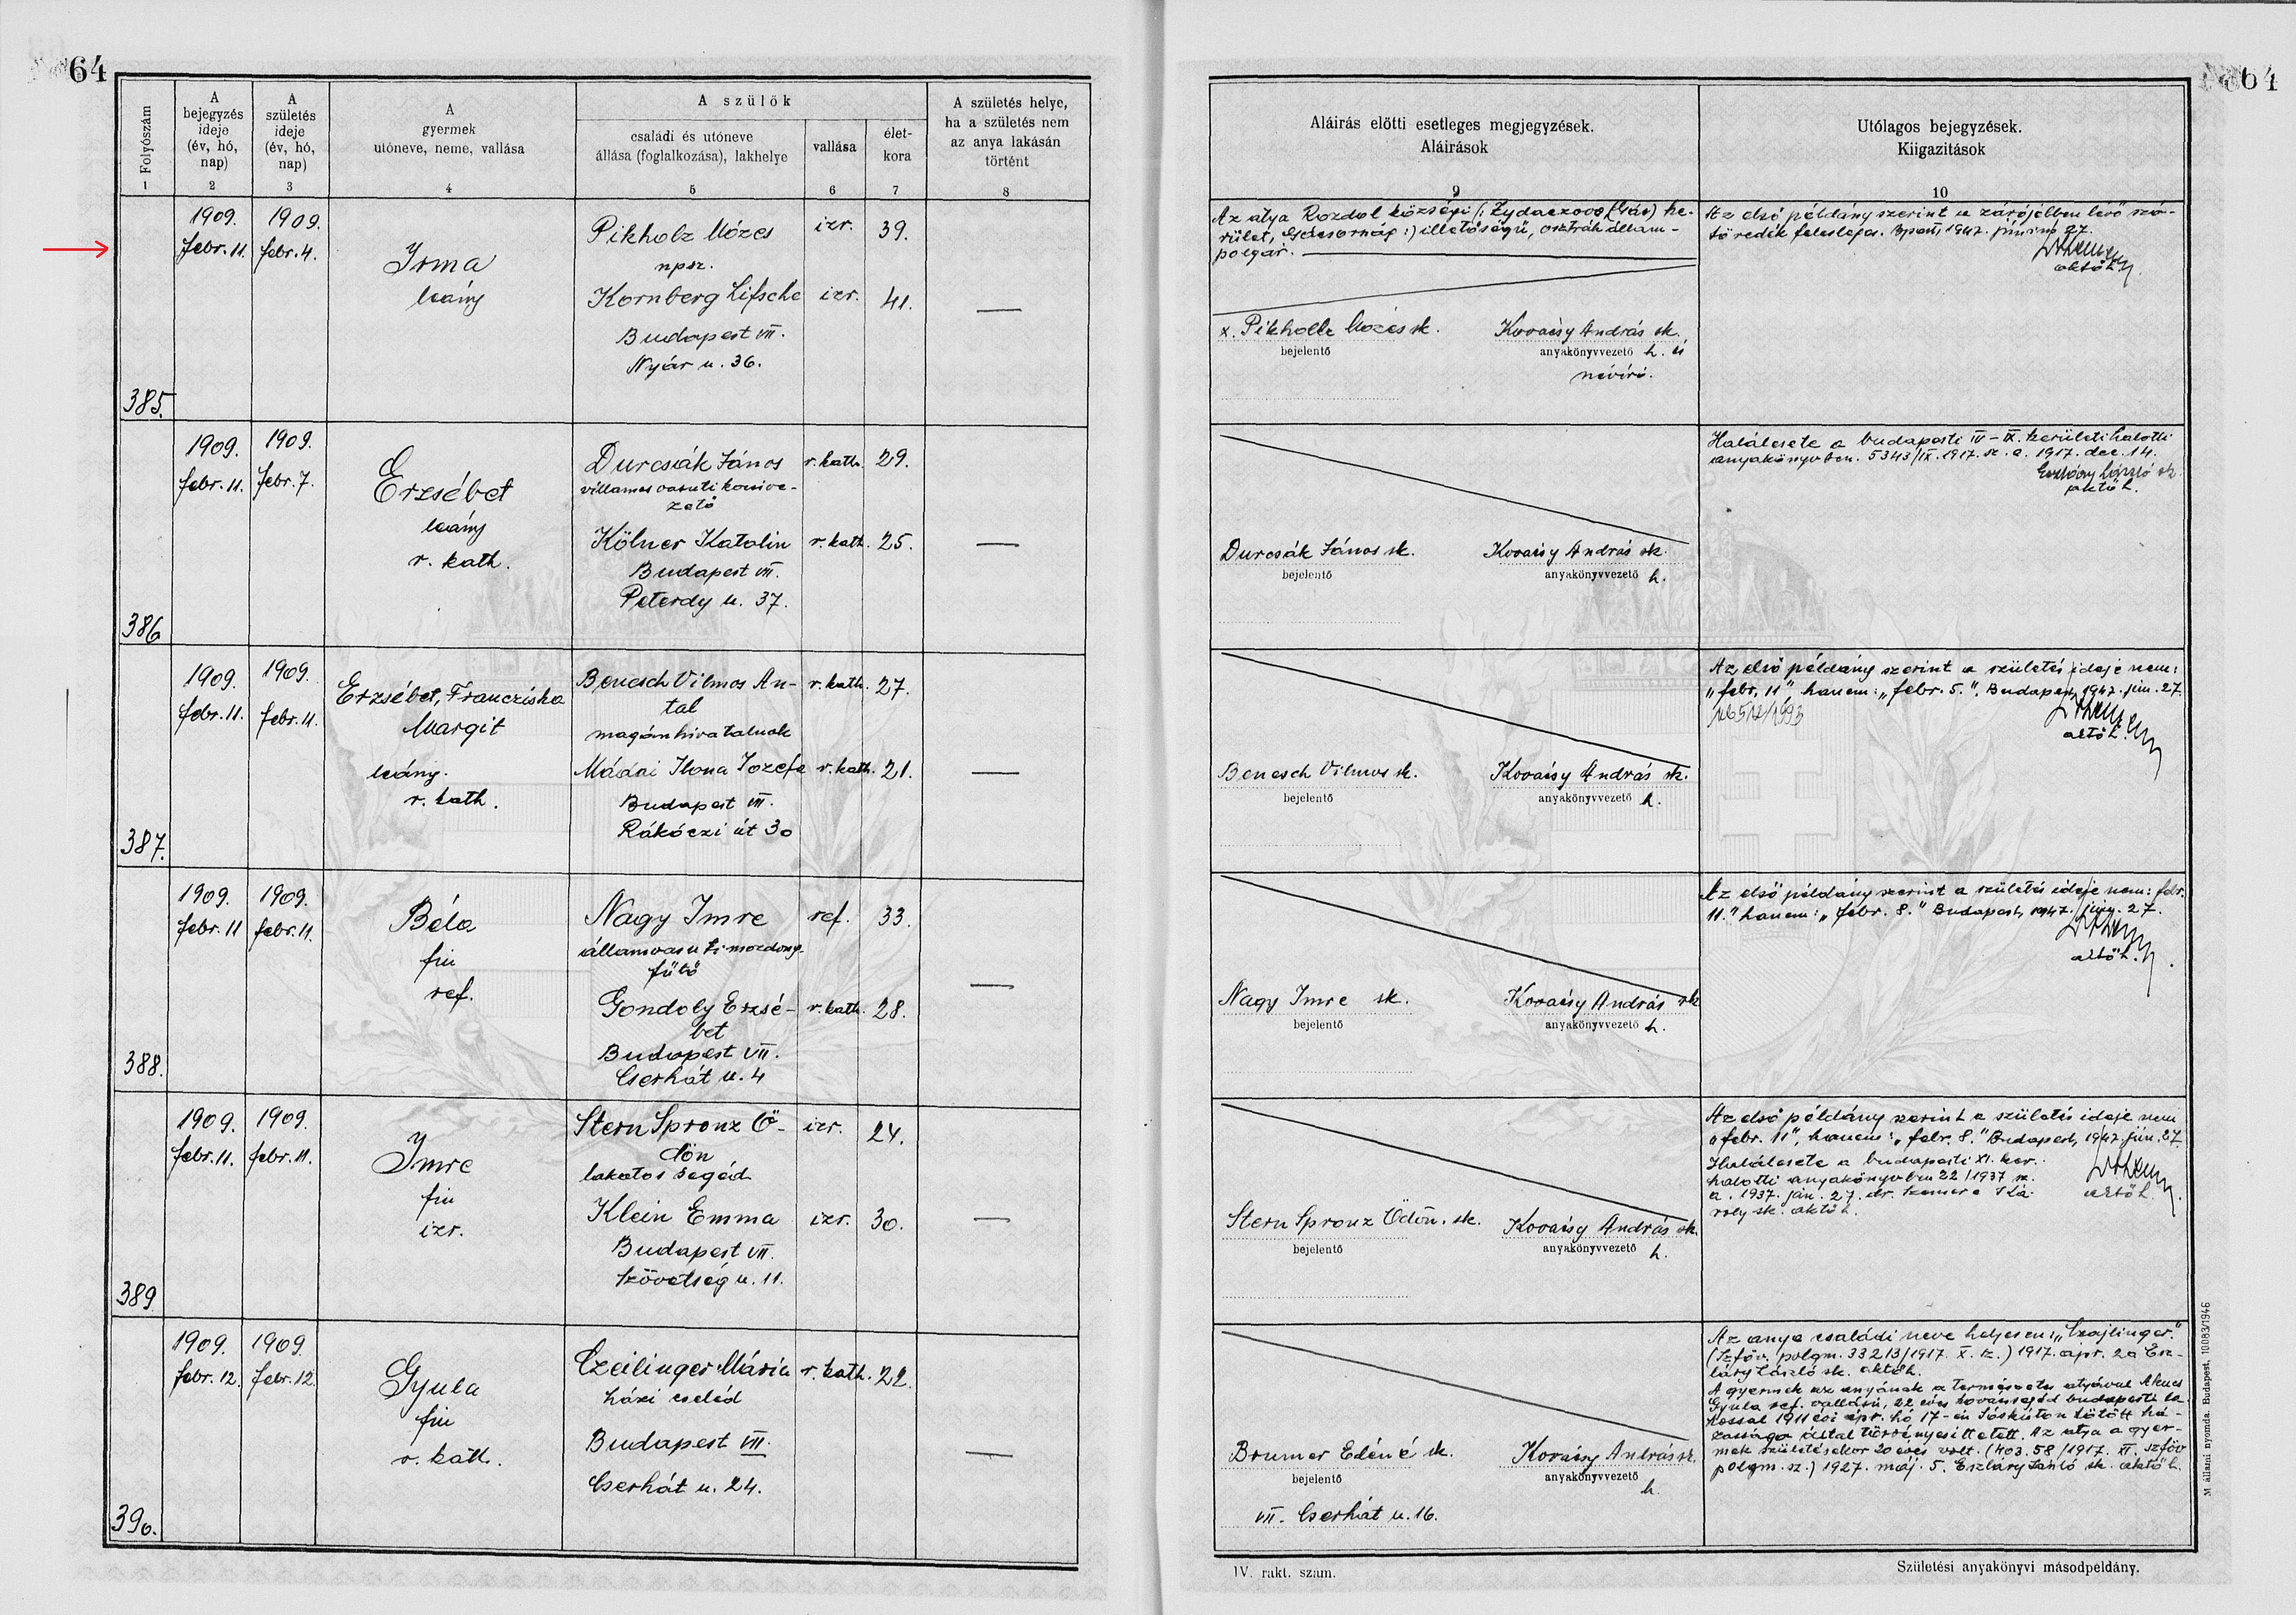 64
64
Folyószám
1
A
bejegyzés
ideje
(év, hó,
nap)
2
A
születés
ideje
(év, hó,
nap)
3
A
gyermek
utóneve, neme, vallása
4
A szülők
családi és utóneve
állása (foglalkozása), lakhelye
5
vallása
6
élet-
kora
7
A születés helye,
ha a születés nem
az anya lakásán
történt
8
Aláirás előtti esetleges megjegyzések.
Aláirások
9
Utólagos bejegyzések.
Kiigazitások
10
385.
1909.
febr. 11.
1909.
febr. 4.
Irma
leány
Pikholz Mózes
npsz.
izr.
39.
Kornberg Lifsche
izr.
41.
Budapest VII.
Nyár u. 36.
—
Az atya Rozdol községi (: Zydaczowo (Gás) ke-
rület, Gácsország :) illetőségű, osztrák állam-
polgár.
x. Pikholtz Mózes sk.
bejelentő
Kovácsy András sk.
anyakönyvvezető h. és
névíró.
Az első példány szerint a zárójelben levő szó-
töredék felesleges. Bpest, 1947. június 27.
aktőh.
386
1909.
febr. 11.
1909.
febr. 7.
Erzsébet
leány
r. kath.
Durcsák János
villamos vasuti kocsive-
zető
r. kath.
29.
Kölner Katalin
r. kath.
25.
Budapest VII.
Peterdy u. 37.
—
Durcsák János sk.
bejelentő
Kovácsy András sk.
anyakönyvvezető h.
Halálesete a budapesti IV–IX. kerületi halotti
anyakönyvben. 5343/IX. 1917. sz. a. 1917. dec. 14.
László sk
aktőh.
387.
1909.
febr. 11.
1909.
febr. 11.
Erzsébet, Franeziska
Margit
leány.
r. kath.
Benesch Vilmos An-
tal
magánhivatalnok
r. kath.
27.
Mádai Ilona Jozefa
r. kath.
21.
Budapest VII.
Rákóczi út 30
—
Benesch Vilmos sk.
bejelentő
Kovácsy András sk.
anyakönyvvezető h.
Az első példány szerint a születés ideje nem:
„febr. 11”, hanem: „febr. 5.”. Budapest, 1947. jún. 27.
aktőh.
388.
1909.
febr. 11
1909.
febr. 11.
Béla
fiu
ref.
Nagy Imre
államvasuti mozdony-
fűtő
ref.
33.
Gondoly Erzsé-
bet
r. kath.
28.
Budapest VII.
Cserhát u. 4
—
Nagy Imre sk.
bejelentő
Kovácsy András sk
anyakönyvvezető h.
Az első példány szerint a születés ideje nem: febr.
11.” hanem: „febr. 8.” Budapest, 1947. jún. 27.
aktőh.
389
1909.
febr. 11.
1909.
febr. 11.
Imre
fiu
izr.
Stern Spronz Ö-
dön
lakatos segéd
izr.
24.
Klein Emma
izr.
30.
Budapest VII.
Szövetség u. 11.
—
Stern Spronz Ödön. sk.
bejelentő
Kovácsy András sk.
anyakönyvvezető h.
Az első példány szerint a születés ideje nem
„febr. 11”, hanem: „febr. 8.” Budapest, 1947. jún. 27.
Halálesete a budapesti XI. ker.
halotti anyakönyvben 22/1937 sz.
a. 1937. jan. 27. dr. Szemere Ká-
roly sk. aktőh.
aktőh.
390.
1909.
febr. 12.
1909.
febr. 12.
Gyula
fiu
r. kath.
Czeilinger Mária
házi cseléd
r. kath.
22.
Budapest VII.
Cserhát u. 24.
—
Brumer Edéné sk.
bejelentő
VII. Cserhát u. 16.
Kovácsy András sk.
anyakönyvvezető
h.
Az anya családi neve helyesen: „Czajlinger.”
(Szföv. polgm. 33213/1917. X. sz.) 1917. apr. 20 Esz-
láry László sk. aktőh.
A gyermek az anyának a természetes atyával
Gyula ref. vallású, 22 éves budapesti la-
kossal 1911 évi ápr. hó 17-én Sóskúton kötött há-
zassága által törvényesittetett. Az atya a gyer-
mek születésekor 20 éves volt. (403.58/1917. XI. szföv
polgm. sz.) 1927. máj. 5. Eszláry László sk. aktőh.
IV. rakt. szám.
Születési anyakönyvi másodpéldány.
M. állami nyomda. Budapest, 10083/1946